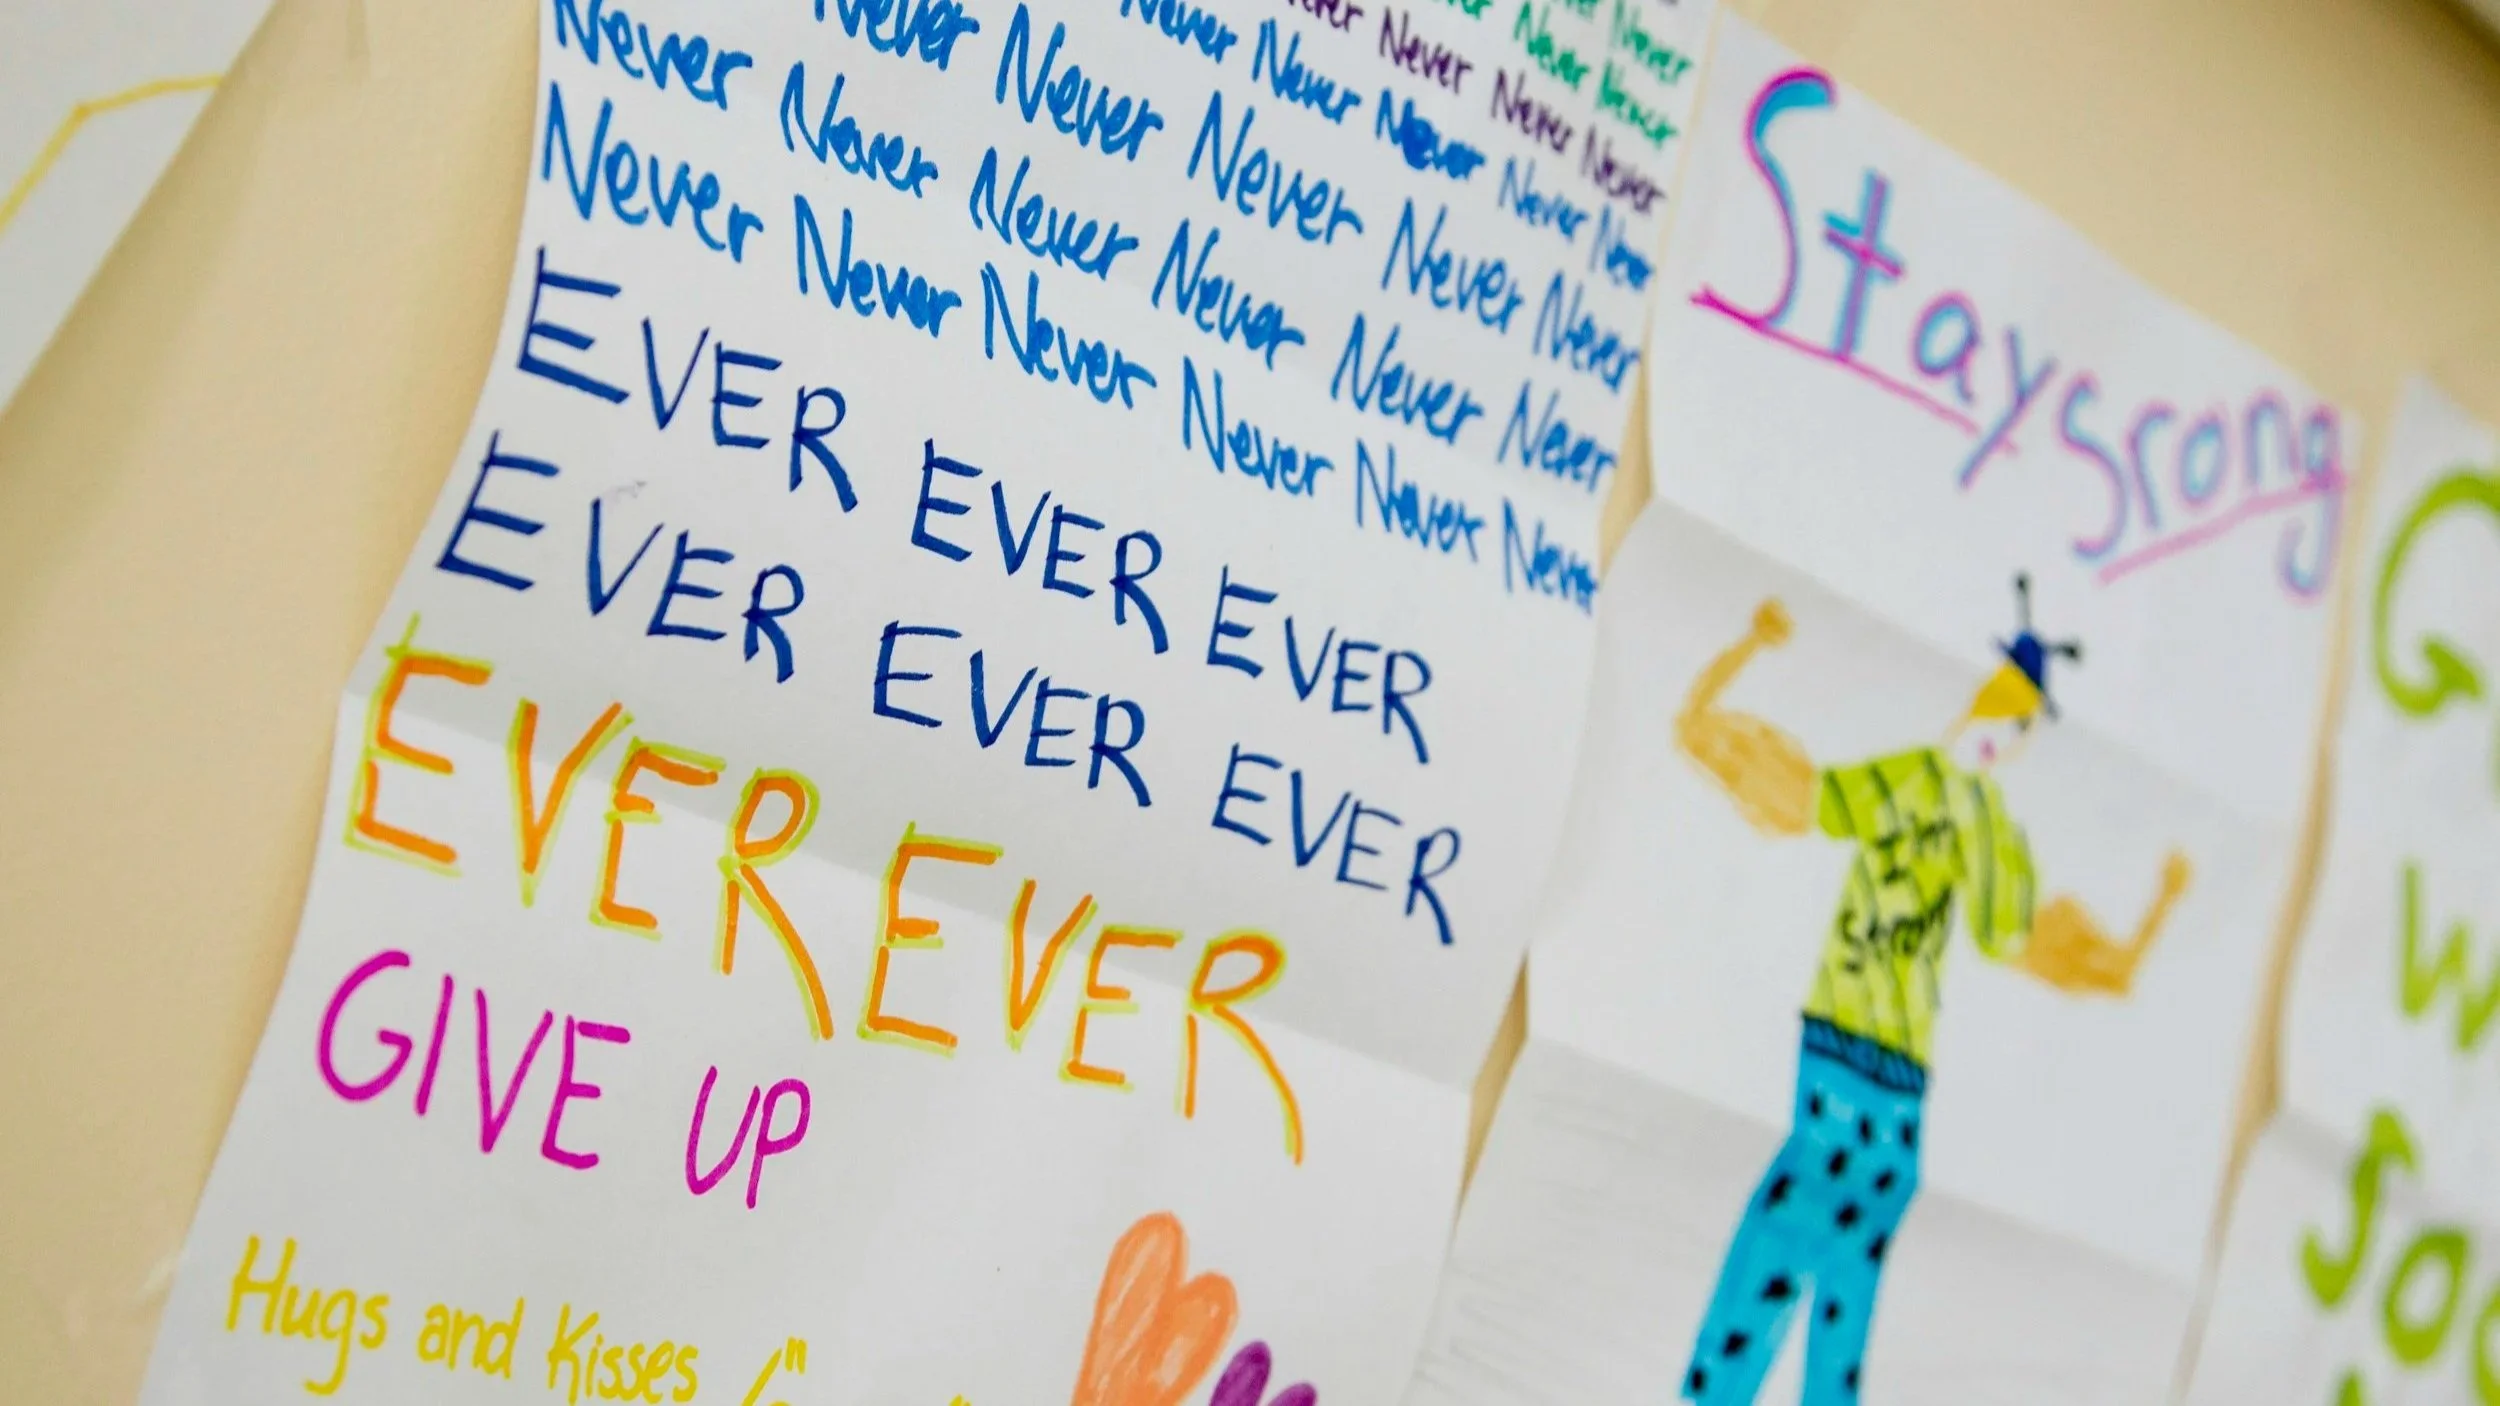 Never
Never Never
Never Never Never
Never Never Never Never Never
Never Never Never Never Never
Never Never Never Never Never Never
Never Never Never Never Never Never
EVER EVER EVER
EVER EVER EVER
EVER EVER
GIVE UP
Hugs and Kisses
Stay Srong
I'm
Strong
G
W
So